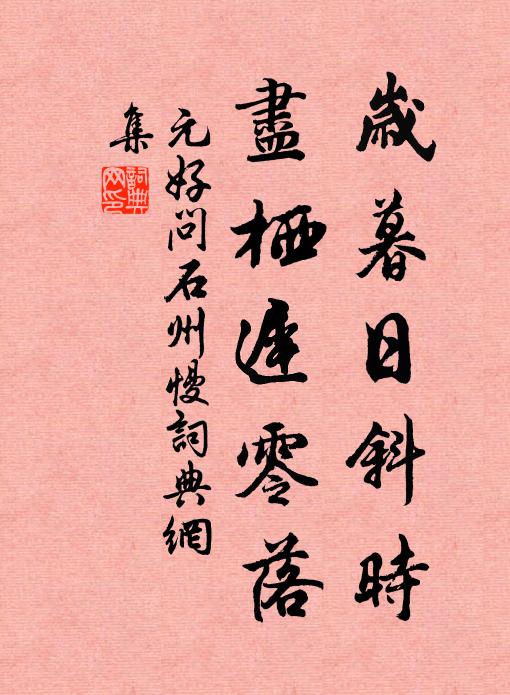 歲暮日斜時
盡栖遲零落
元好問石州慢詞典網
集
詞典網印